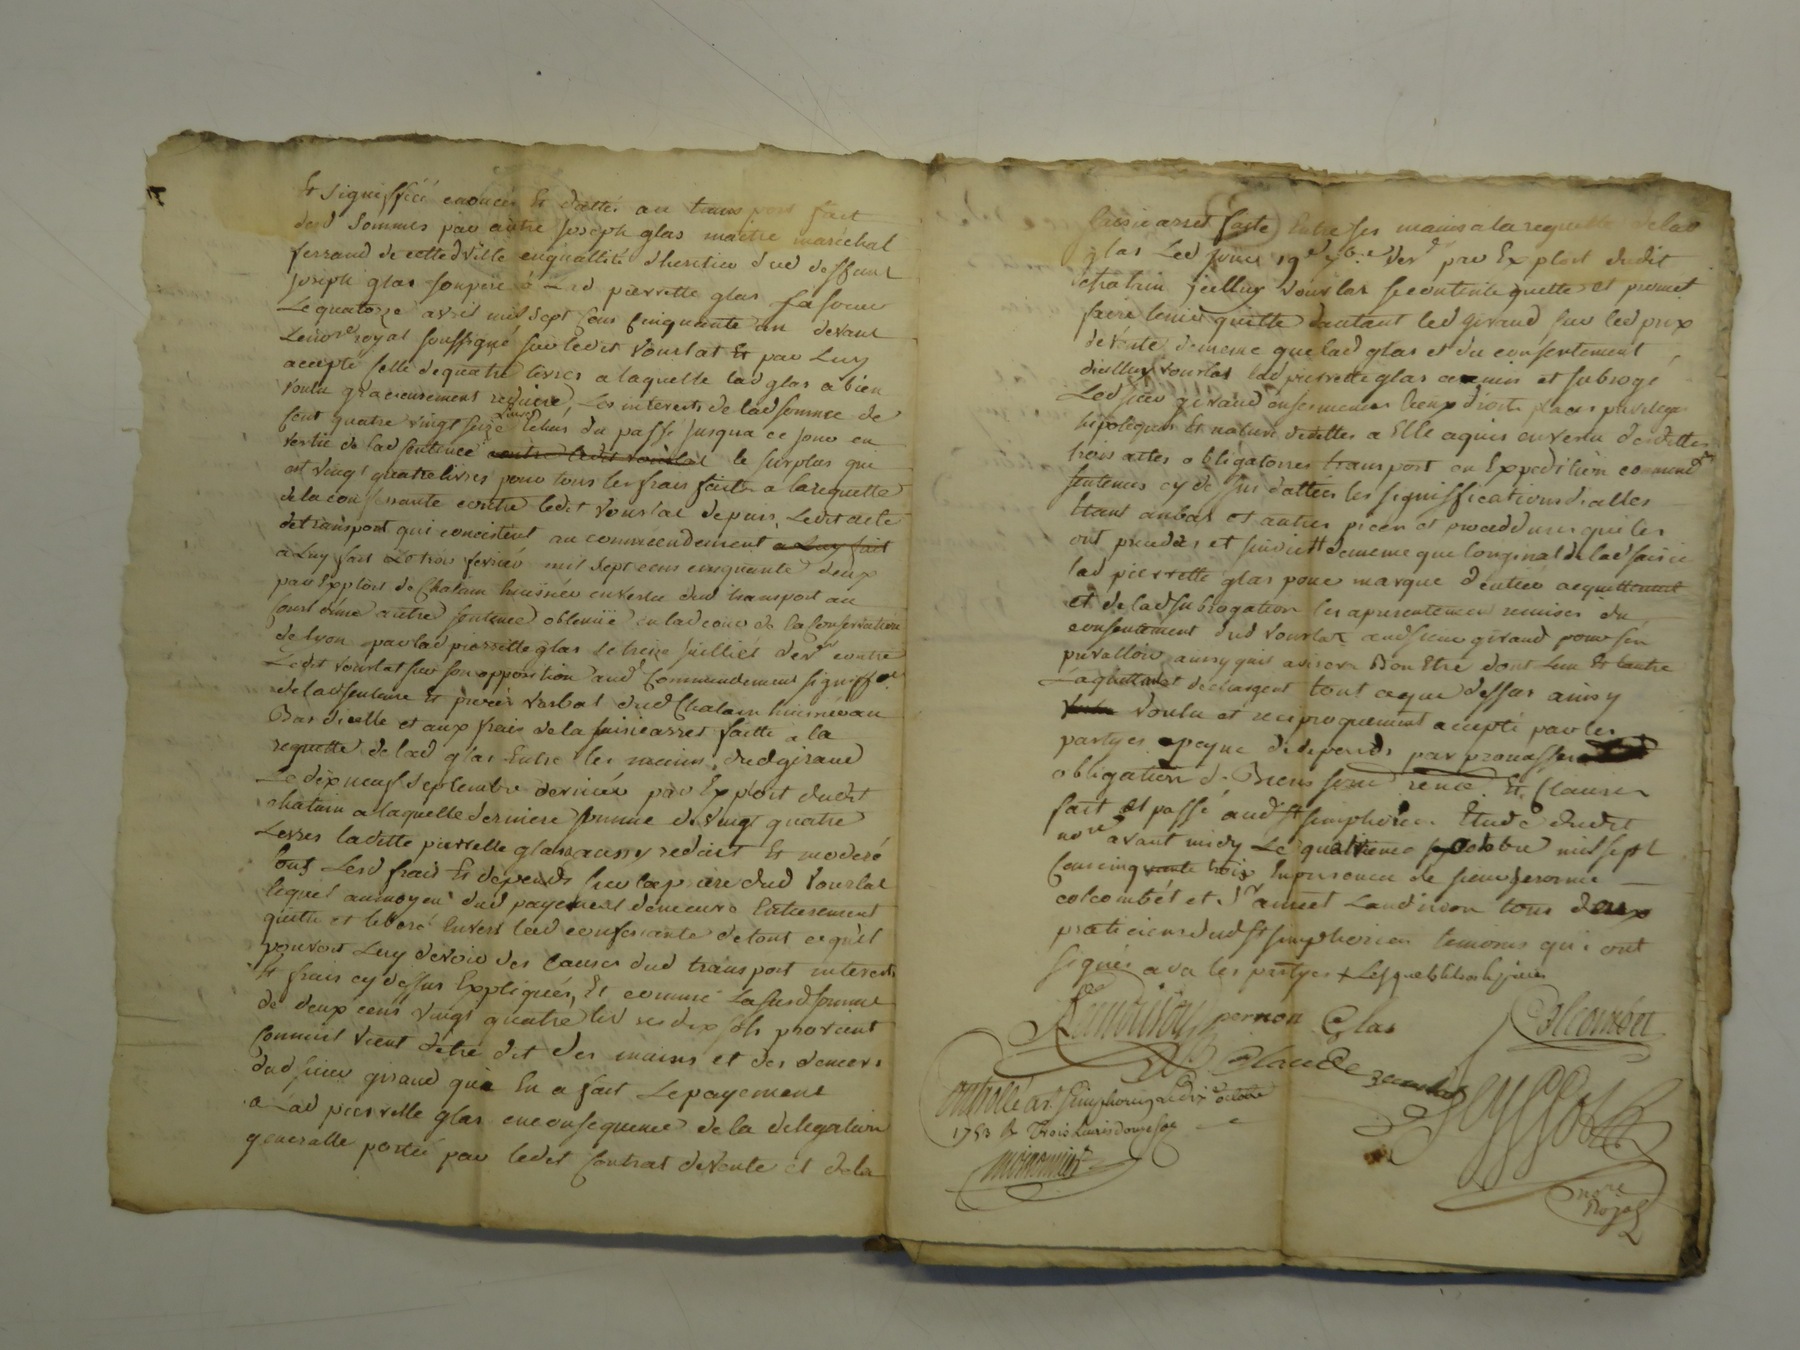 Et signiffiée enoncée Et dattée au transport fait
desd sommes par autre Joseph glas maitre marechal
ferrand de cette d ville enquallité dheritier dud deffunt
Joseph glas son pere a Lad pierrette glas sa soeur
Le quatorze avril mil sept cens Cinquante un devant
Le nore royal soussigné sur ledit vourlat Et par Luy
accepté selle de quatre livres a laquelle lad glas a bien
voulu gracieusement reduire Les interests de lad somme de
cent quatre vingt seize Livres Echus du passé jusqua ce jour en
vertu de lad sentence contre ledit vourlat le surplus qui
est vingt quatre livres pour tous les frais faits a la requette
de la confessante contre ledit vourlat depuis Ledit acte
de transport qui concistent au commendement a Luy fait
a Luy fait Le trois fevrier mil sept cens cinquante deux
par Exploit de Chatain huissier en vertu dud transport au
Coust d'une autre sentence obtenüe en lad cour de la Conservation
de lyon par lad pierrette glas le treize juilliet der contre
Ledit vourlat sur son opposition aud Commendement signiffon
de lad sentence Et procès verbal dud Chatain huissier au
Bas dicelle et aux frais de la saisie arret faitte a la
requette de lad glas Entre les mains dud giraud
Le dix neuf septembre dernier par Exploit dudit
chatain a laquelle derniere somme de vingt quatre
Livres laditte pierrette glas a aussy reduit Et moderé
tous Lesd frais Et depends sur la priere dud Vourlat
lequel au moyen dud payement demeure Entierement
quitte et liberé Envers lad confessante de tout ce qu'il
pouvoit Luy devoir des Causes dud transport interests
Et frais cy dessus Expliqués, Et comme La susd somme
de deux cens vingt quatre livres dix sols provient
Comme il vient d'etre dit des mains et des deniers
dud sieur giraud qui En a fait Le payement
a Lad pierrette glas en consequence de la delegation
generalle portée par ledit Contrat de vente et de la
saisie arret faite Entre ses mains a la requette de lad
glas Led jour 19e 7bre der par Exploit dudit
chatain icelluy vourlat se contente quitte et promet
faire tenir quitte d'autant led giraud sur led prix
de vente de meme que lad glas et du consentement
dicelluy vourlat lad pierrette glas a mis et subrogé
Led sieur giraud en ses memes lieux droits places privilege
hipoteques Et nature de dettes a Elle aquis en vertu desdittes
trois actes obligatoires transport en Expedition commend
sentences cy dessus dattées les signiffications dicelles
Etant au bas et autres pieces et proceddures qui les
ont precedés et suivis Et de meme que l'original de lad saisie
lad pierrette glas pour marque d'entier acquittement
et de lad subrogation les a presentement remises du
consentement dud vourlat aud sieur giraud pour s'en
prevalloir ainsy quil avisera Bon Etre dont lun Et lautre
L'aquittent et dechargent tout ce que dessus ainsy
voulu et reciproquement accepté par les
partyes a peyne de depends par promesses
obligation de Biens soum renon Et Clauses
fait Et passé aud St simphorien Etude dudit
nore avant midy Le quatrieme octobre mil sept
Cens cinquante trois En presence de sieur jerome
colcombet et Sr annet Landrivon tous deux
praticiens dud St simphorien temoins qui ont
signés avec les partyes
pernon Glas Colcombet
Claude
Controllé a St Simphorien Le dix octobre
1753 R Trois Livres douze sols
nore
Royal